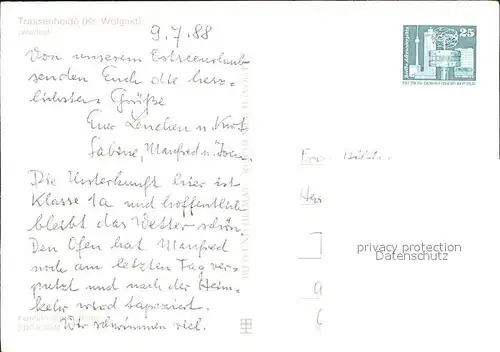 Trassenheide (Kr. Wolgast)
9.7.88
Von unserem Ostseeurlaub
senden Euch die herz-
lichsten Grüße
Eure Lenchen u. Kurt
Sabine, Manfred u.
Die Unterkunft hier ist
Klasse 1a und hoffentlich
bleibt das Wetter schön.
Den Ofen hat Manfred
noch am letzten Tag ver-
putzt und nach der Heim-
kehr wird tapeziert.
Wir schwimmen viel.
25
DEUTSCHE DEMOKRATISCHE REPUBLIK
privacy protection
Datenschutz